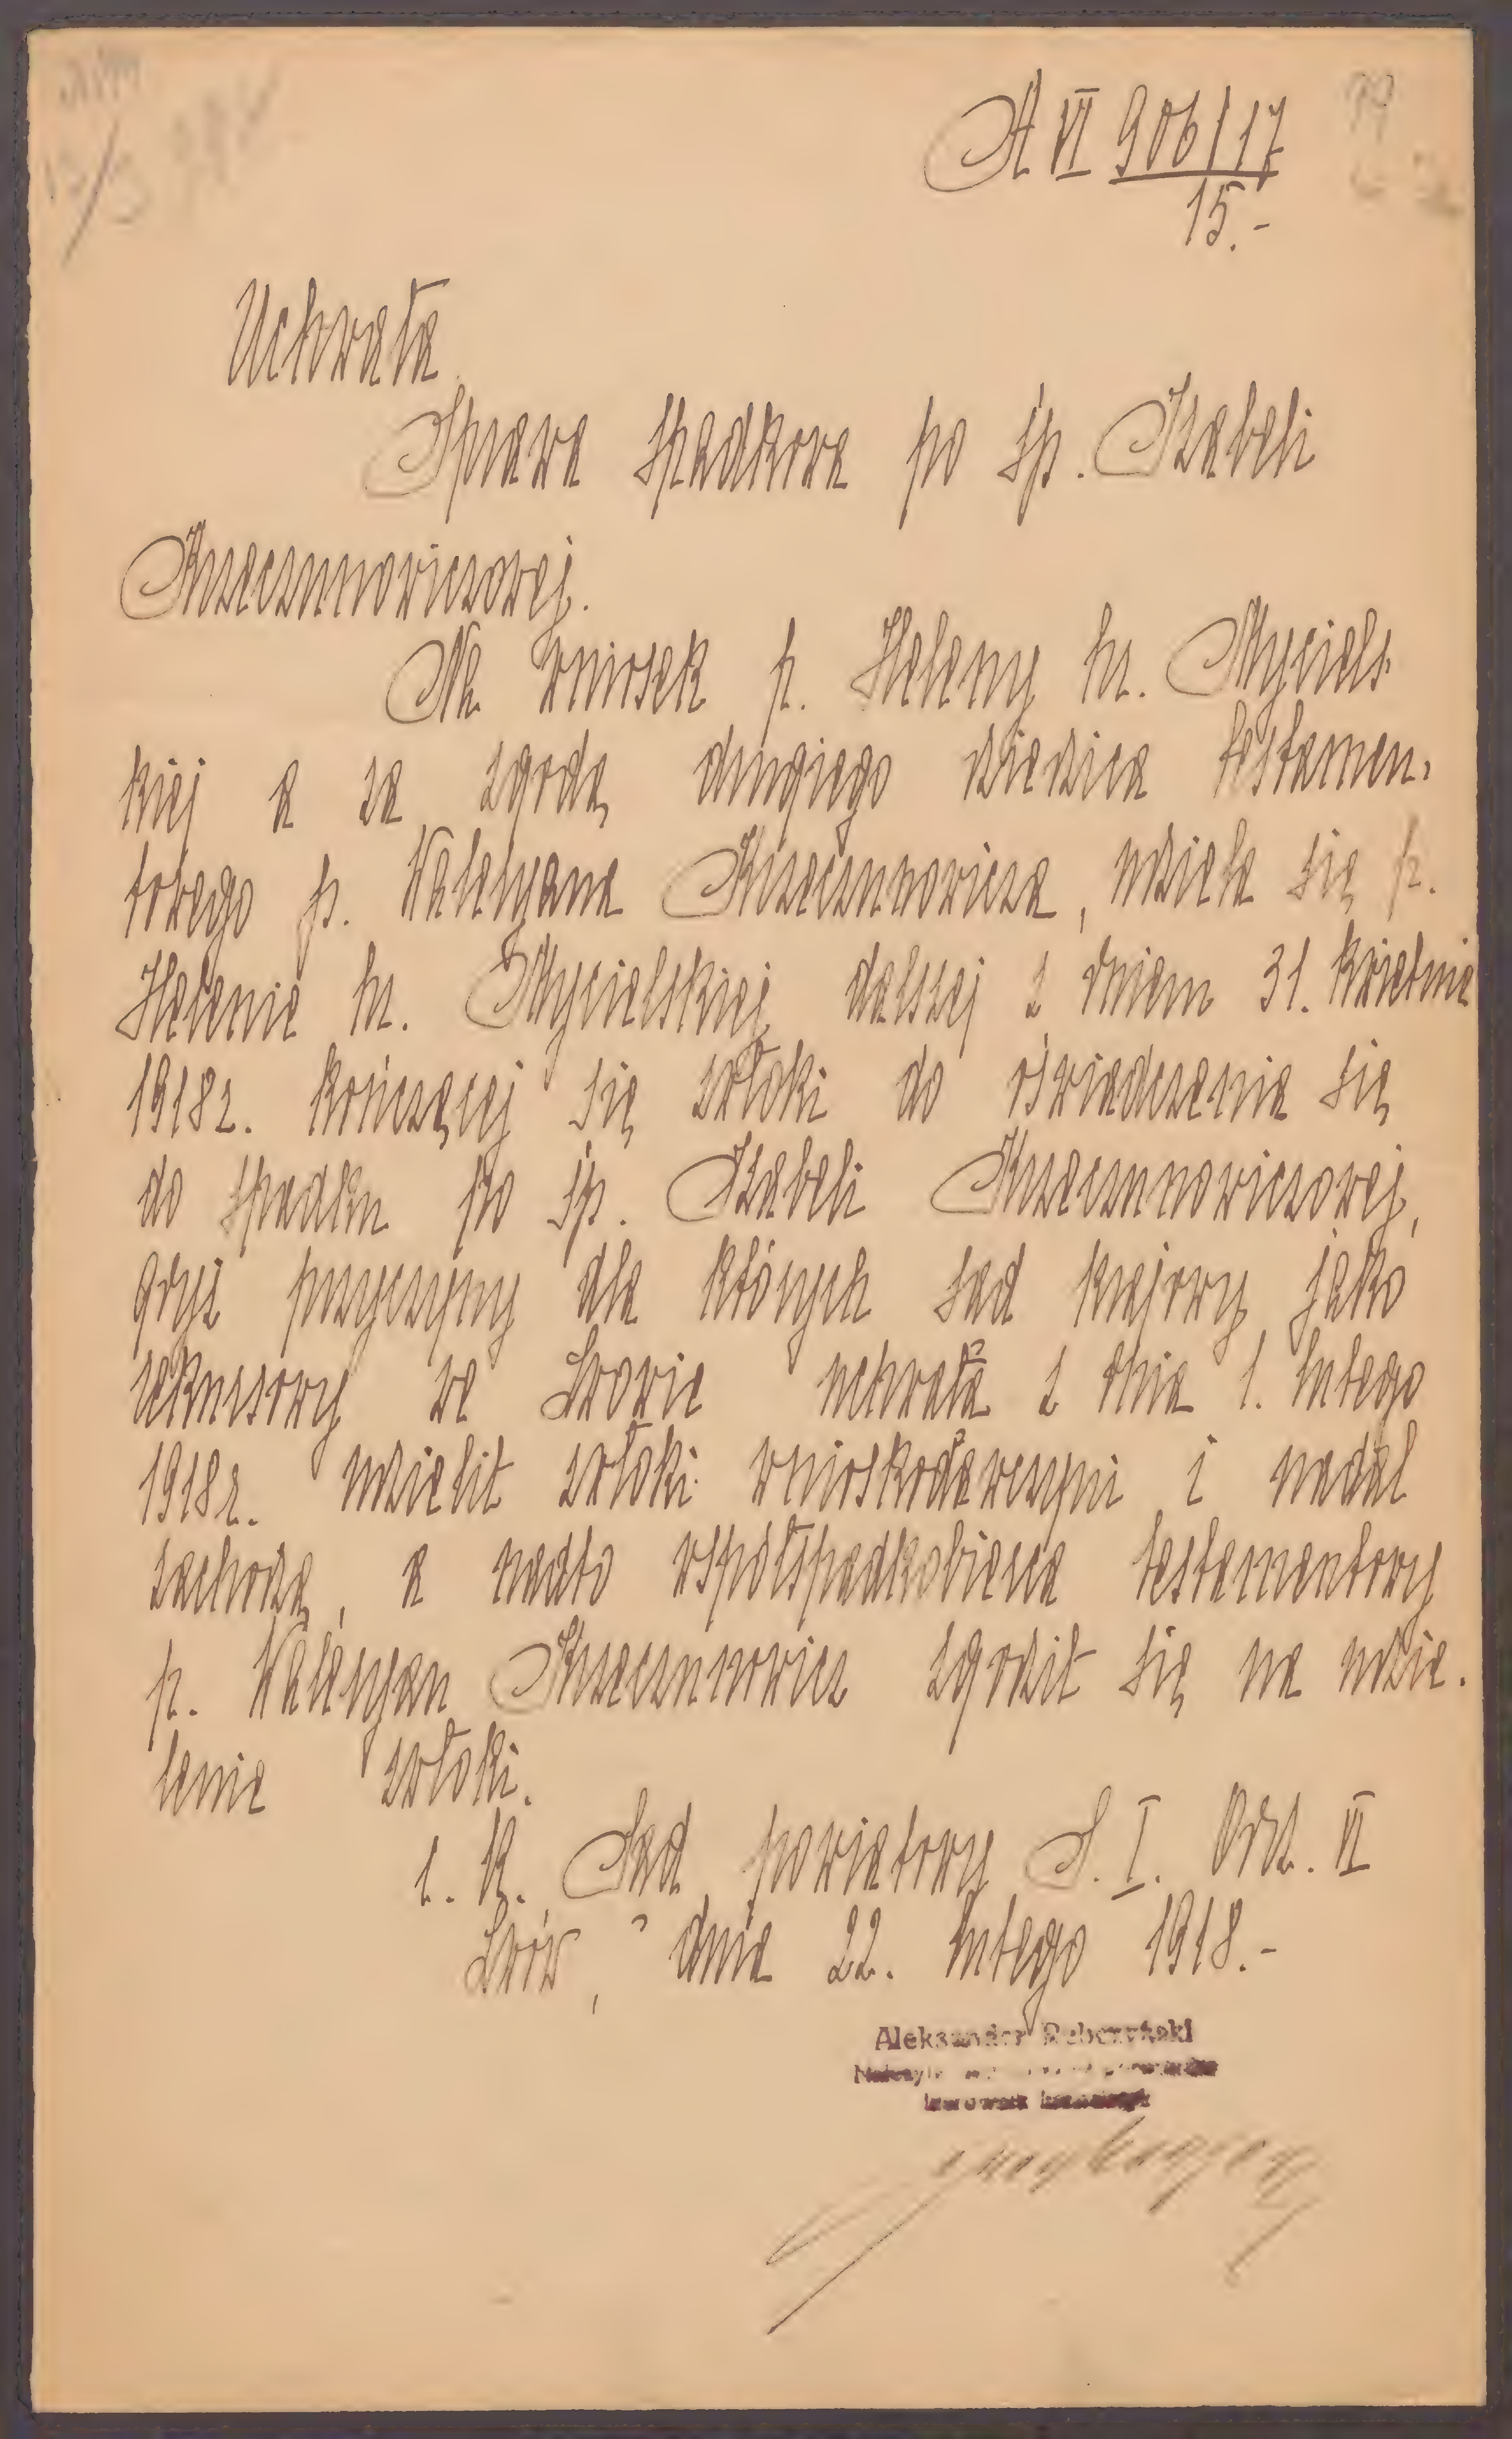 A VI 906/17
15.-
Uchwała
Sprawa spadkowa po śp. Izabeli
Krzeczunowiczowej.
Na wniosek p. Heleny hr. Myciels-
kiej a za zgodą drugiego dziedzica testamen-
towego p. Waleryana Krzeczunowicza, udziela się p.
Helenie hr. Mycielskiej dalszej z dniem 31. kwietnia
1918r. kończącej się zwłoki do oświadczenia się
do spadku po śp. Izabeli Krzeczunowiczowej,
gdyż przyczyny dla których Sąd krajowy jako
rekursowy we Lwowie uchwałą z dnia 1. lutego
1918r. udzielił zwłoki wnioskodawczyni i nadal
zachodzą, a nadto współspadkobierca testamentowy
p. Waleryan Krzeczunowicz zgodził się na udzie-
lenie zwłoki.
c. k. Sąd powiatowy S. I. Odd. VI
Lwów, dnia 22. lutego 1918.-
Aleksander